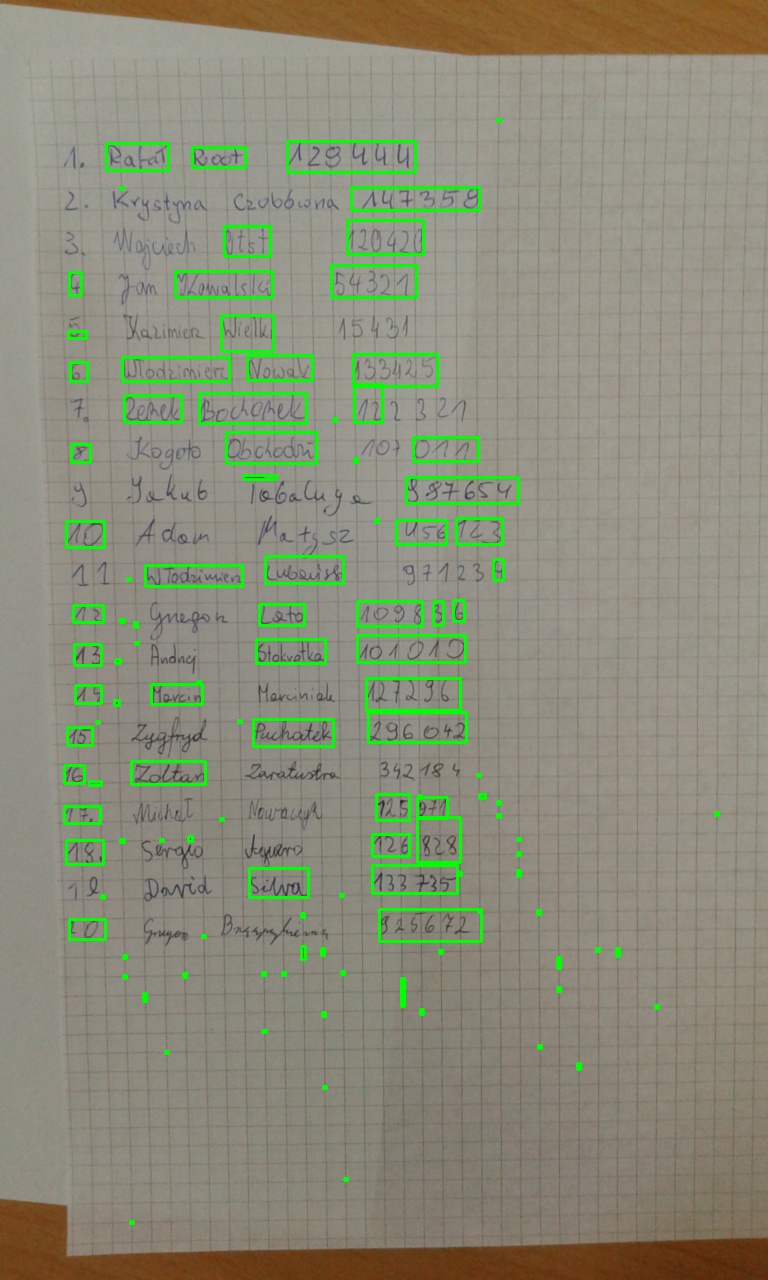 1. Rafał Root 129444
2. Krystyna Czubówna 147359
3. Wojciech 120420
4 Jan Kowalski 54321
5. Kazimierz Wielki 15431
6. Włodzimierz Nowak 133425
7. Zenek Bochenek 122321
8 Kogoto Obchodzi 107 011
9 Jakub Tabaluga 987654
10 Adam Matysz 456 123
11. Włodzimierz 971234
12. Grzegorz Lato 1098 3 6
13. Andrzej Stokrotka 101010
14. Marcin Marciniak 127296
15. Zygfryd Puchatek 296 042
16. Zoltan Zaratustra 342184
17. Michał Nowaczyk 125 971
18. Sergio Aguero 126 828
19. David Silva 133 735
20 Grzegorz 925672